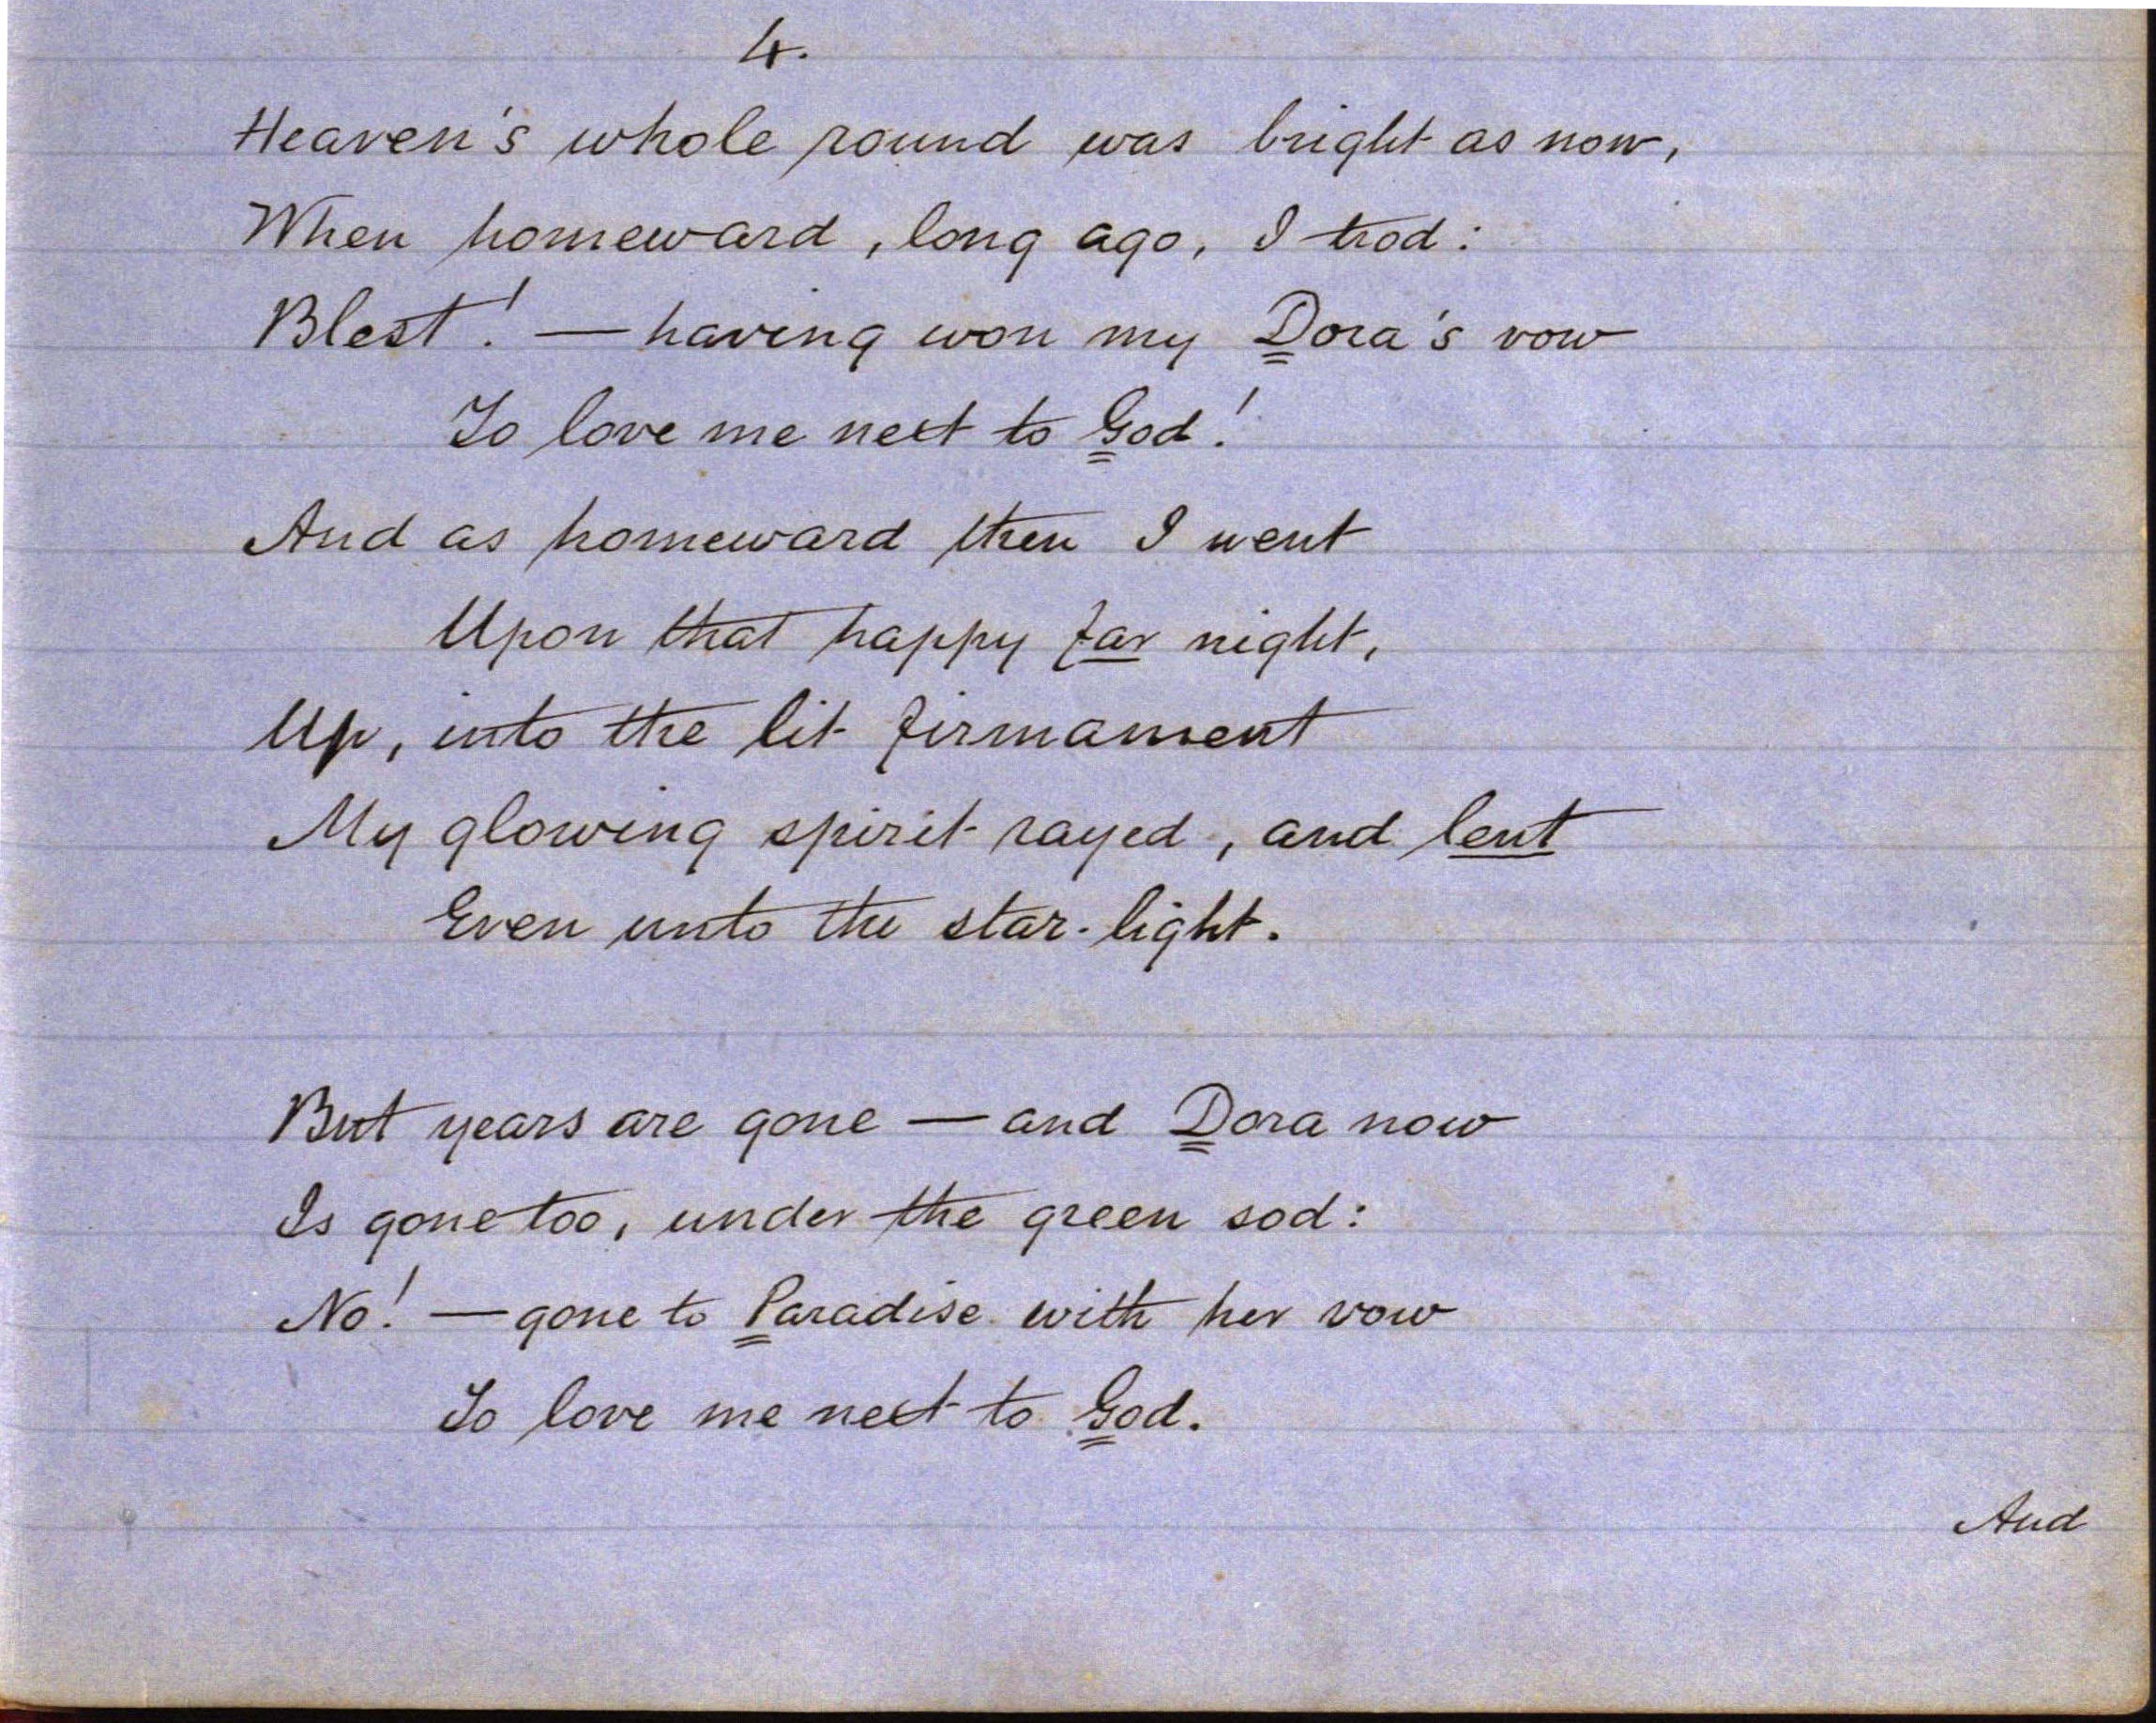 4.
Heaven's whole round was bright as now,
When homeward, long ago, I trod:
Blest! — having won my Dora's vow
To love me next to God!
And as homeward then I went
Upon that happy far night,
Up, into the lit firmament
My glowing spirit rayed, and lent
Even unto the star-light.
But years are gone — and Dora now
Is gone too, under the green sod:
No! — gone to Paradise with her vow
To love me next to God.
And